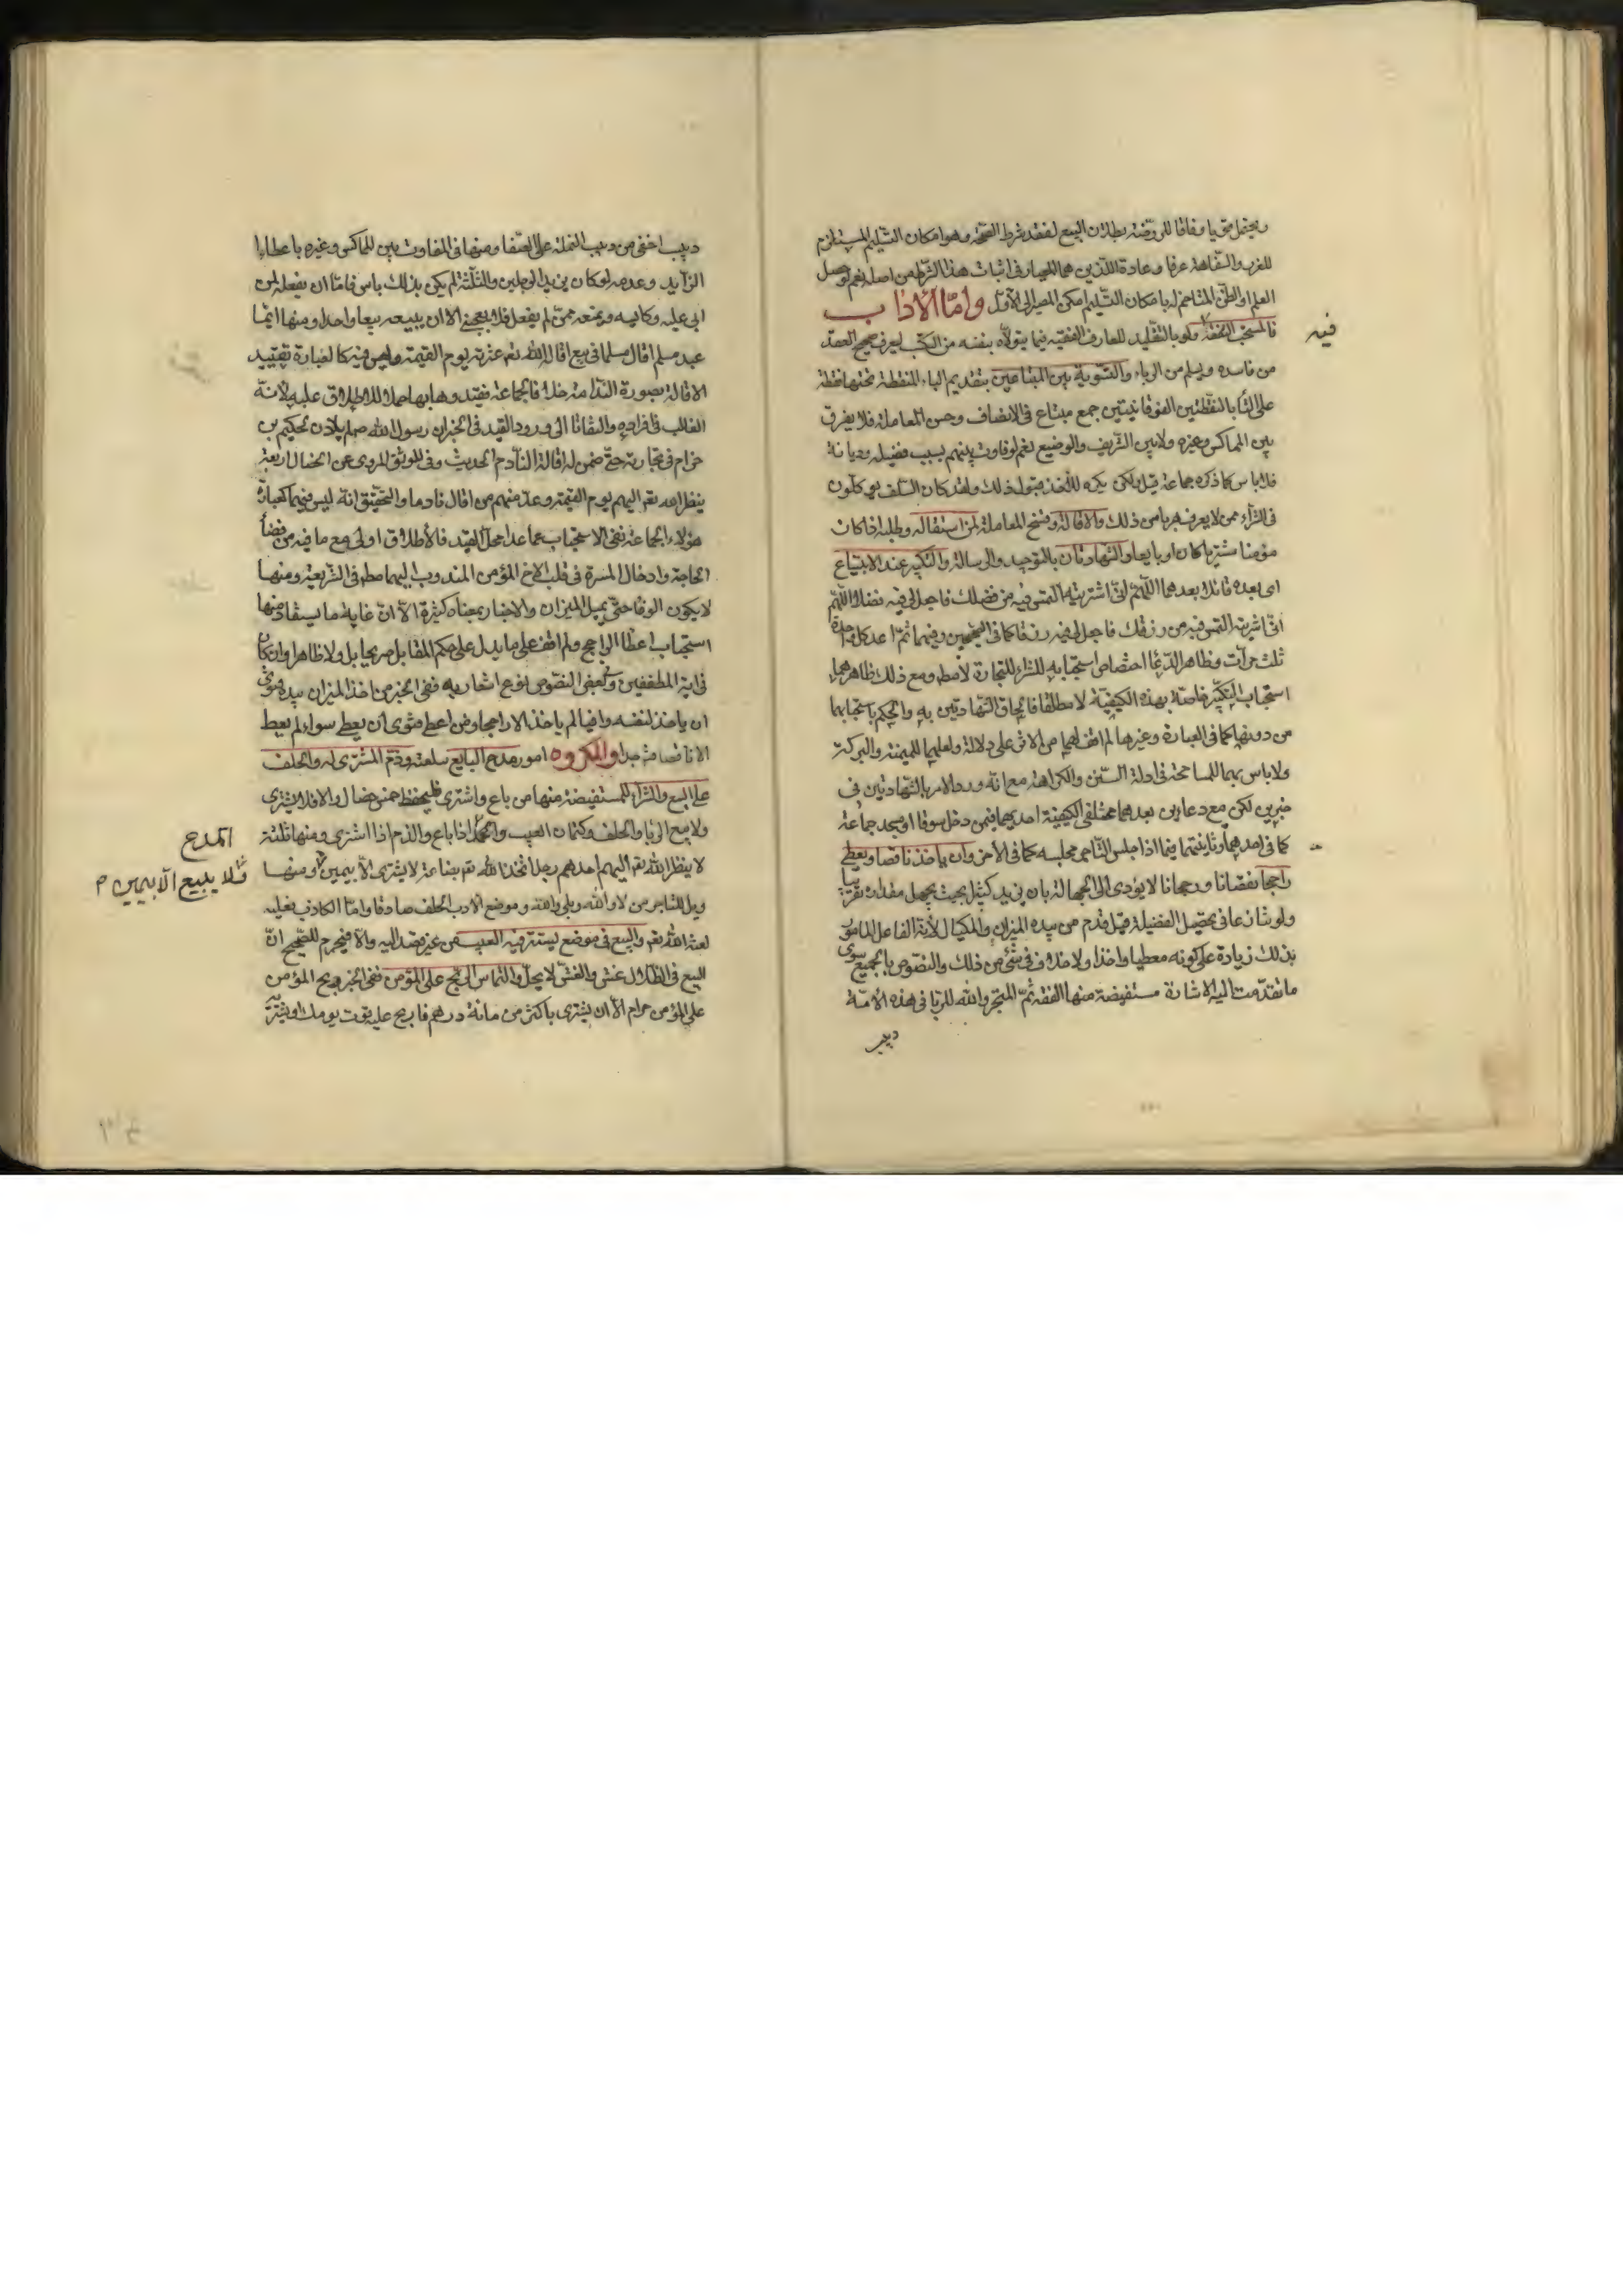 ويحتمل قويا وفاقا للروضة بطلان البيع لفقد شرط الصحة وهو امكان التسليم المستلزم
للغرر والسفاهة عرفا وعادة اللذين هما المعيار في اثبات هذا الشرط من اصله نعم لو حصل
العلم او الظن المتاخم له بامكان التسليم امكن المصير الى الاول واما الاداب
فالمستحب التفقه ولو بالتقليد للعارف الفقيه فيما يتولاه بنفسه من الكتب ليعرف صحيح العقد
فيه
من فاسده ويسلم من الرباء والتسوية بين المبتاعين بتقديم الباء المنقطة تحتها نقطة
على التا بالنقطتين الفوقانيتين جمع مبتاع في الانصاف وحسن المعاملة فلا يفرق
بين المماكس وغيره ولا بين الشريف والوضيع نعم لو فاوت بينهم بسبب فضيلة وديانة
فلا باس كما ذكره جماعة قيل ولكن يكره للاخذ قبول ذلك ولقد كان السلف يوكلون
في الشراء ممن لا يعرف هربا من ذلك والاقالة وفسخ المعاملة لمن استقاله وطلبه اذا كان
مؤمنا مشتريا كان او بايعا والشهادتان بالتوحيد والرسالة والتكبير عند الابتياع
اى بعده قائلا بعدهما اللهم انى اشتريته التمس فيه من فضلك فاجعل لي فيه فضلا اللهم
انى اشتريته التمس فيه من رزقك فاجعل لي فيه رزقا كما في الصحيحين وفيهما ثم اعد كل واحدة
ثلث مرات وظاهر الدعا اختصاص استحبابه للشراء للتجارة لا مطم ومع ذلك ظاهرهما
استحباب التكبير خاصة بهذه الكيفية لا مطلقا فالحاق الشهادتين به والحكم باستحبابهما
من دونها كما في العبارة وغيرها لم اقف لهما من الاثر على دلالة ولعلهما للميمنة والبركة
ولا باس بهما للمسامحة في ادلة السنن والكراهة مع انه ورد الامر بالشهادتين في
خبرين لكن مع دعاءين بعدهما مختلفى الكيفية احديهما فيمن دخل سوقا او مسجد جماعة
كما في احدهما وثانيتهما فيما اذا جلس التاجر مجلسه كما في الاخر وان ياخذ ناقصا ويعطى
راجحا نقصانا ورجحانا لا يؤدى الى الجهالة بان يزيد كثيرا بحيث يجهل مقداره تقريبا
ولو تنازعا في تحصيل الفضيلة قيل قدم من بيده الميزان والمكيال لانه الفاعل المامور
بذلك زيادة على كونه معطيا واخذا ولا خلاف في شئ من ذلك والنصوص بالجميع سوى
ما تقدمت اليه الاشارة مستفيضة منها الفقه ثم المتجر والله للربا في هذه الامة
دبيب
دبيب اخفى من دبيب النملة على الصفا ومنها في المفاوت بين المماكس وغيره باعطاء
الزايد وعدمه لو كان يزيد الرجلين والثلثة لم يكن بذلك باس فاما ان يفعله لمن
ابى عليه وكايسه ويمنعه ممن لم يفعل فلا يعجبني الا ان يبيعه بيعا واحدا ومنها ايما
عبد مسلم اقال مسلما في بيع اقال الله تعم عثرته يوم القيمة وليس فيه كالعبارة تقييد
الاقالة بصورة الندامة خلافا لجماعة فقيدوها بها حملا للاطلاق عليه لانه
الغالب في افراده والتفاتا الى ورود القيد في الخبر ان رسول الله صلم لم ياذن لحكيم بن
حزام في تجارته حتى ضمن له اقالة النادم الحديث وفي الموثق المروى عن الخصال اربعة
ينظر الله تعم اليهم يوم القيمة وعد منهم من اقال نادما والتحقيق انه ليس فيهما كعبارة
هؤلاء الجماعة نفى الاستحباب عما عدا محل القيد فالاطلاق اولى مع ما فيه من قضاء
الحاجة وادخال المسرة في قلب الاخ المؤمن المندوب اليهما مطم في الشريعة ومنها
لا يكون الوفا حتى يميل الميزان والاخبار بمعناه كثيرة الا ان غاية ما يستفاد منها
استحباب اعطا الراجح ولم اقف على ما يدل على حكم المقابل صريحا بل ولا ظاهرا وان كان
في اية المطففين وبعض النصوص نوع اشعار به ففى الخبر من اخذ الميزان بيده فنوى
ان ياخذ لنفسه وافيا لم ياخذ الا راجحا ومن اعطى فنوى ان يعطى سواء لم يعط
الا ناقصا جدا والمكروه امور مدح البايع سلعته وذم المشترى له والحلف
على البيع والشراء للمستفيضة منها من باع واشترى فليحفظ خمس خصال والا فلا يشترى
ولا يبيع الربا والحلف وكتمان العيب والحمد اذا باع والذم اذا اشترى ومنها ثلثة
المدح
لا ينظر الله تعم اليهم احدهم رجل اتخذ الله تعم بضاعة لا يشترى الا بيمين ومنها
فلا يبيع الا بيمين م
ويل للتاجر من لا والله وبلى والله وموضع الادب الحلف صادقا واما الكاذب فعليه
لعنة الله تعم والبيع في موضع يستتر فيه العيب من غير قصد اليه والا فيحرم للصحيح ان
البيع في الظلال غش والغش لا يحل والتماس الربح على المؤمن ففى الخبر ربح المؤمن
على المؤمن حرام الا ان يشترى باكثر من مائة درهم فاربح عليه قوت يومك او يشتريه